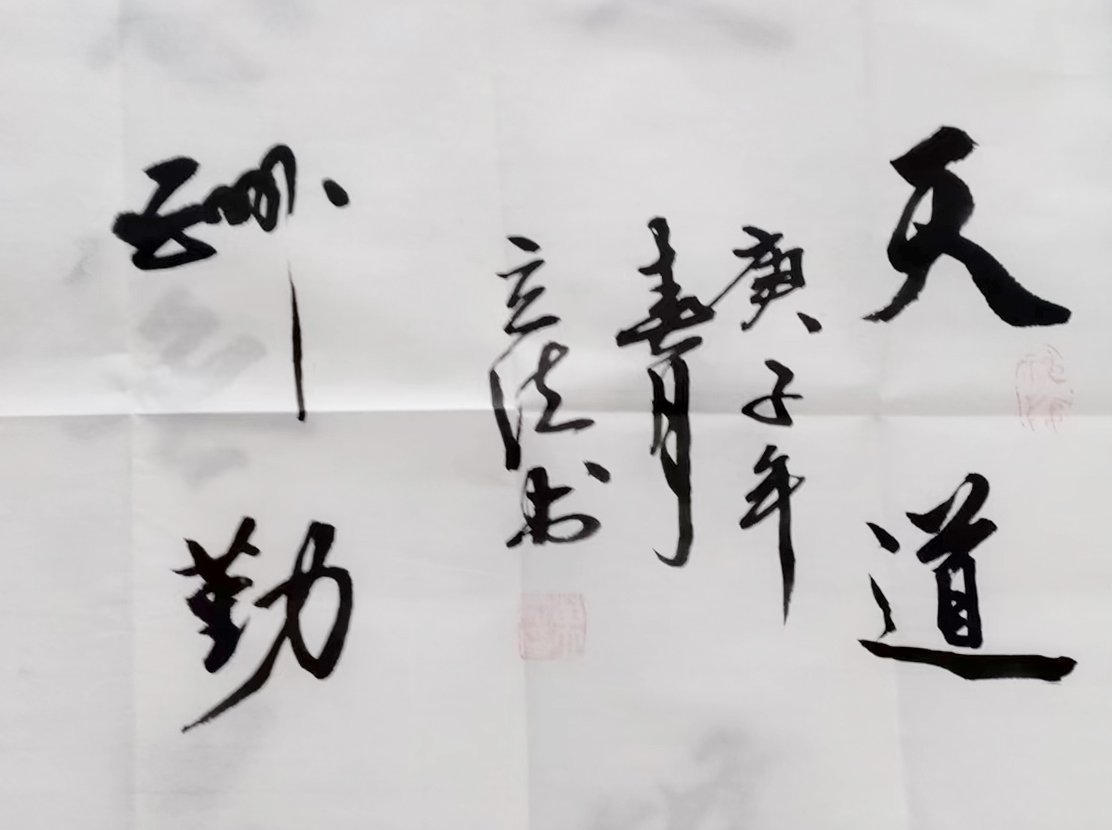 天道
庚子年
春月
立法书
酬勤